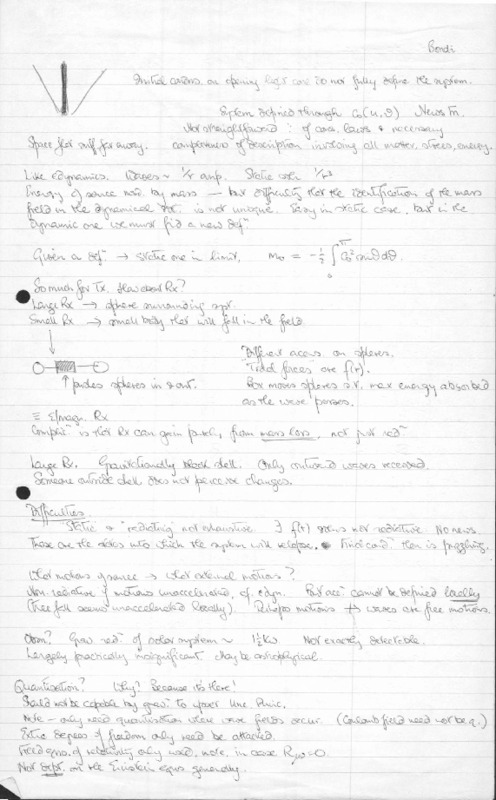 Bondi
Initial conds. on opening light cone do not fully define the system.
System defined through c₀(u,θ) News fn.
Not straightforward ∵ of cons. laws & necessary
Space flat suff. far away. completeness of description involving all matter, stress, energy.
Like edynamics. Waves ~ 1/r amp. Static
Energy of source mod. by mass — but difficulty that the identification of the mass
field in the dynamical is not unique. Easy in static case, but in the
dynamic one we must find a new defⁿ.
Given a defⁿ → static one in limit, ṁ₀ = -½ ∫₀^π ċ₀² sinθ dθ.
So much for Tx. How about Rx?
Large Rx → sphere surrounding syst.
Small Rx → small body that will fall in the field
Different accns. on spheres.
"Tidal forces" are f(t).
↑ pushes spheres in & out. For moves spheres s.t. max energy absorbed
as the wave passes.
≡ Emagn. Rx
is that Rx can gain from mass loss, not just radⁿ
Large Rx. Gravitationally shell. Only outward waves received.
Someone outside shell does not perceive changes.
Difficulties.
Static & radiating not exhaustive. ∃ f(t) systems not radiative. No news.
These are the states into which the system will relapse. then is puzzling.
What motions of source → what external motions?
Non-radiative if motions unaccelerated, cf. edyn. But accⁿ cannot be defined locally
(Free fall seems unaccelerated locally). Perhaps motions ↛ waves are free motions.
Obsn? Grav. radⁿ of solar system ~ 1½ kw Not exactly detectable.
Largely practically insignificant. May be astrophysical.
Quantisation? Why? Because it's there!
Should not be capable by gravⁿ to upset Unc. Princ.
Note - only need quantisation where wave fields occur. (Coulomb field need not be q.)
Extra degrees of freedom only need be attacked.
Field eqns. of relativity only used, note, in case Rμν=0.
Not dept. on the Einstein eqns generally.